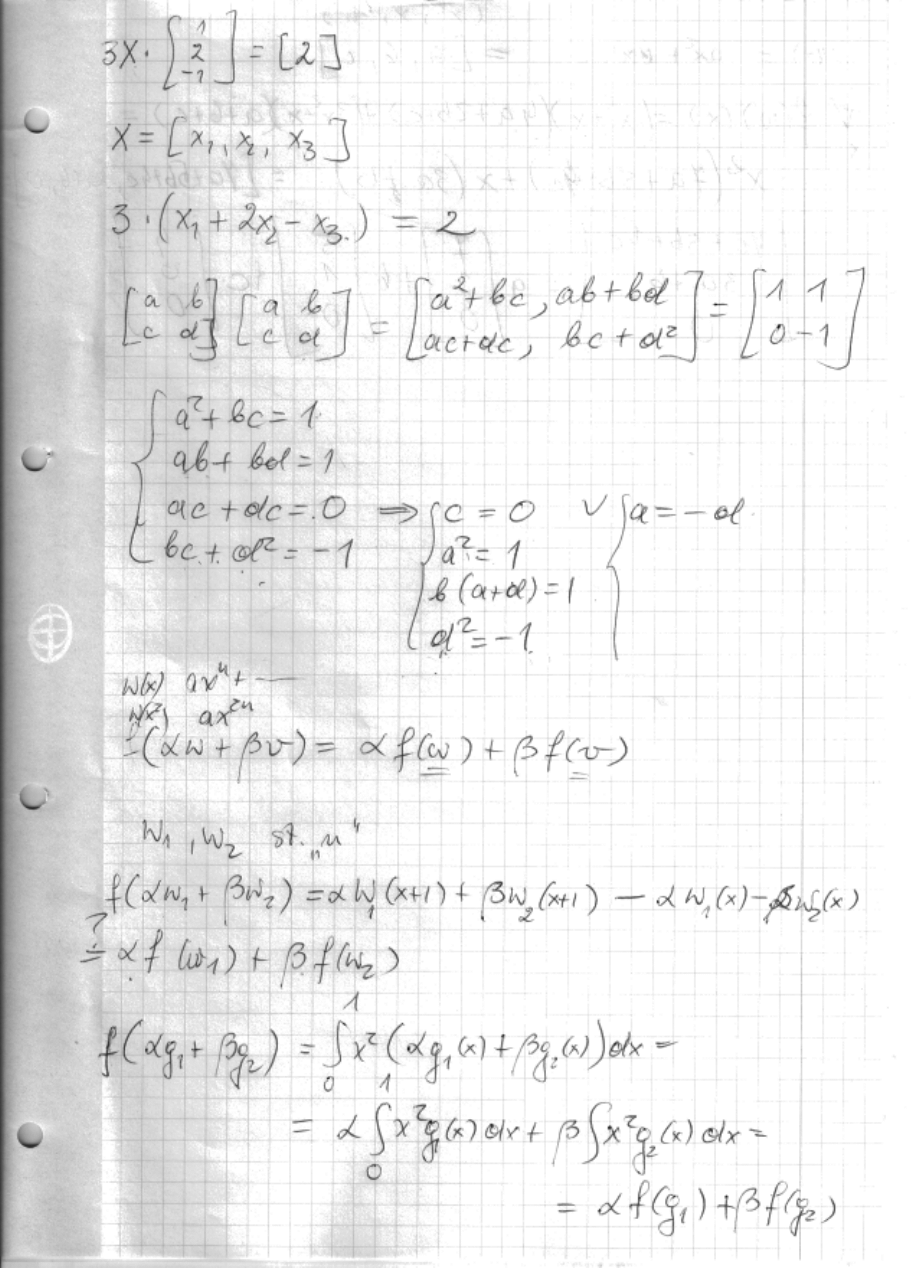 3X · [1 2 -1] = [2]
X = [x₁, x₂, x₃]
3 · (x₁ + 2x₂ - x₃) = 2
[a b; c d] [a b; c d] = [a²+bc, ab+bd; ac+dc, bc+d²] = [1 1; 0 -1]
{ a²+bc = 1
ab + bd = 1
ac + dc = 0 ⇒ { c = 0 ∨ { a = -d
bc + d² = -1 a² = 1
b(a+d) = 1
d² = -1
w(x) axⁿ + —
w(x²) ax²ⁿ
f(αw + βv) = αf(w) + βf(v)
w₁, w₂ st. „n"
f(αw₁ + βw₂) = αw₁(x+1) + βw₂(x+1) - αw₁(x) - βw₂(x)
≟ αf(w₁) + βf(w₂)
f(αg₁ + βg₂) = ∫₀¹ x²(αg₁(x) + βg₂(x))dx =
= α∫₀¹ x²g₁(x)dx + β∫x²g₂(x)dx =
= αf(g₁) + βf(g₂)